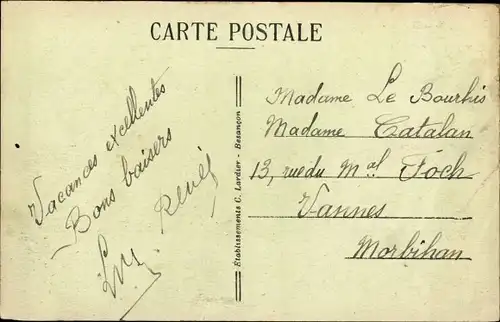 CARTE POSTALE
Vacances excellentes
Bons baisers
René
Etablissements C. Lardier - Besançon
Madame Le Bourhis
Madame Catalan
13, rue du Mal Foch
Vannes
Morbihan